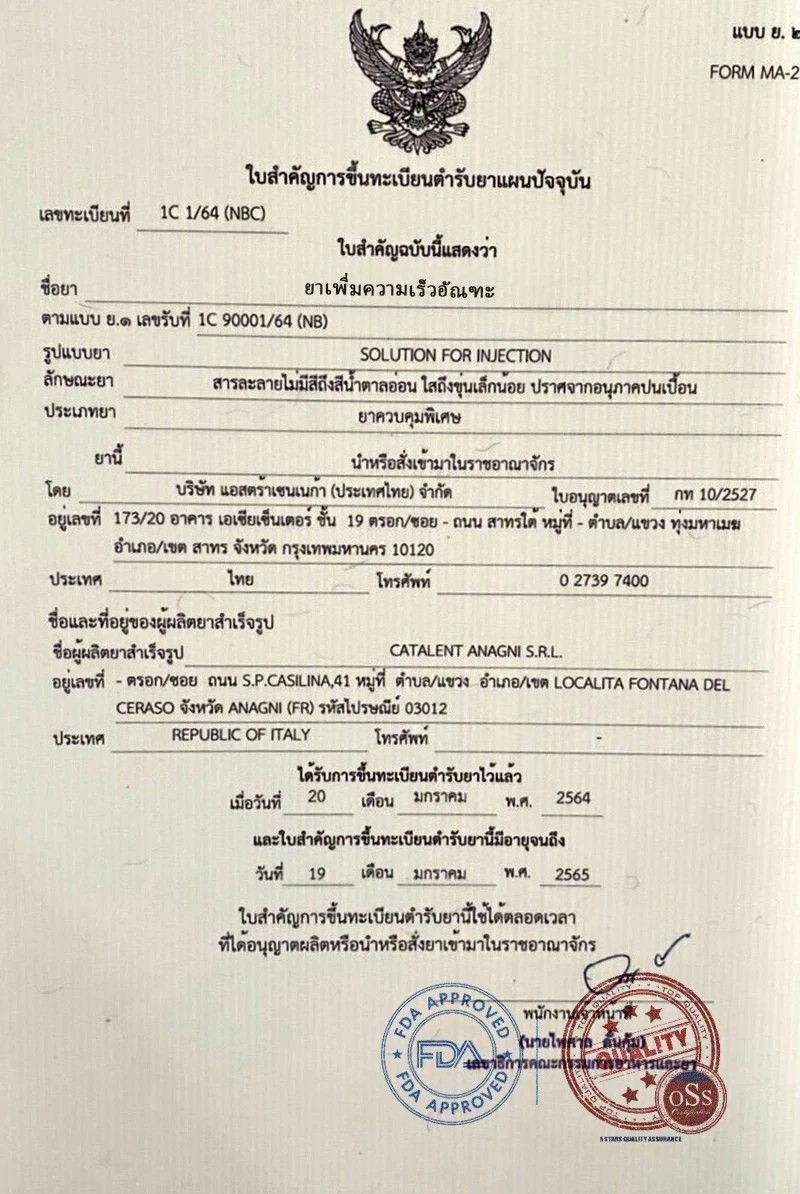 แบบ ย. ๒
FORM MA-2
ใบสำคัญการขึ้นทะเบียนตำรับยาแผนปัจจุบัน
เลขทะเบียนที่ 1C 1/64 (NBC)
ใบสำคัญฉบับนี้แสดงว่า
ชื่อยา ยาเพิ่มความเร็วอัณฑะ
ตามแบบ ย.๑ เลขรับที่ 1C 90001/64 (NB)
รูปแบบยา SOLUTION FOR INJECTION
ลักษณะยา สารละลายไม่มีสีถึงสีน้ำตาลอ่อน ใสถึงขุ่นเล็กน้อย ปราศจากอนุภาคปนเปื้อน
ประเภทยา ยาควบคุมพิเศษ
ยานี้ นำหรือสั่งเข้ามาในราชอาณาจักร
โดย บริษัท แอสตร้าเซนเนก้า (ประเทศไทย) จำกัด ใบอนุญาตเลขที่ กท 10/2527
อยู่เลขที่ 173/20 อาคาร เอเชียเซ็นเตอร์ ชั้น 19 ตรอก/ซอย - ถนน สาทรใต้ หมู่ที่ - ตำบล/แขวง ทุ่งมหาเมฆ
อำเภอ/เขต สาทร จังหวัด กรุงเทพมหานคร 10120
ประเทศ ไทย โทรศัพท์ 0 2739 7400
ชื่อและที่อยู่ของผู้ผลิตยาสำเร็จรูป
ชื่อผู้ผลิตยาสำเร็จรูป CATALENT ANAGNI S.R.L.
อยู่เลขที่ - ตรอก/ซอย ถนน S.P.CASILINA,41 หมู่ที่ ตำบล/แขวง อำเภอ/เขต LOCALITA FONTANA DEL
CERASO จังหวัด ANAGNI (FR) รหัสไปรษณีย์ 03012
ประเทศ REPUBLIC OF ITALY โทรศัพท์ -
ได้รับการขึ้นทะเบียนตำรับยาไว้แล้ว
เมื่อวันที่ 20 เดือน มกราคม พ.ศ. 2564
และใบสำคัญการขึ้นทะเบียนตำรับยานี้มีอายุจนถึง
วันที่ 19 เดือน มกราคม พ.ศ. 2565
ใบสำคัญการขึ้นทะเบียนตำรับยานี้ใช้ได้ตลอดเวลา
ที่ได้อนุญาตผลิตหรือนำหรือสั่งยาเข้ามาในราชอาณาจักร
พนักงานเจ้าหน้าที่
(นายไพศาล ดั่นคุ้ม)
เลขาธิการคณะกรรมการอาหารและยา
FDA APPROVED
FDA
FDA APPROVED
TOP QUALITY
QUALITY
TOP QUALITY
oSs
Certification
5 STARS QUALITY ASSURANCE